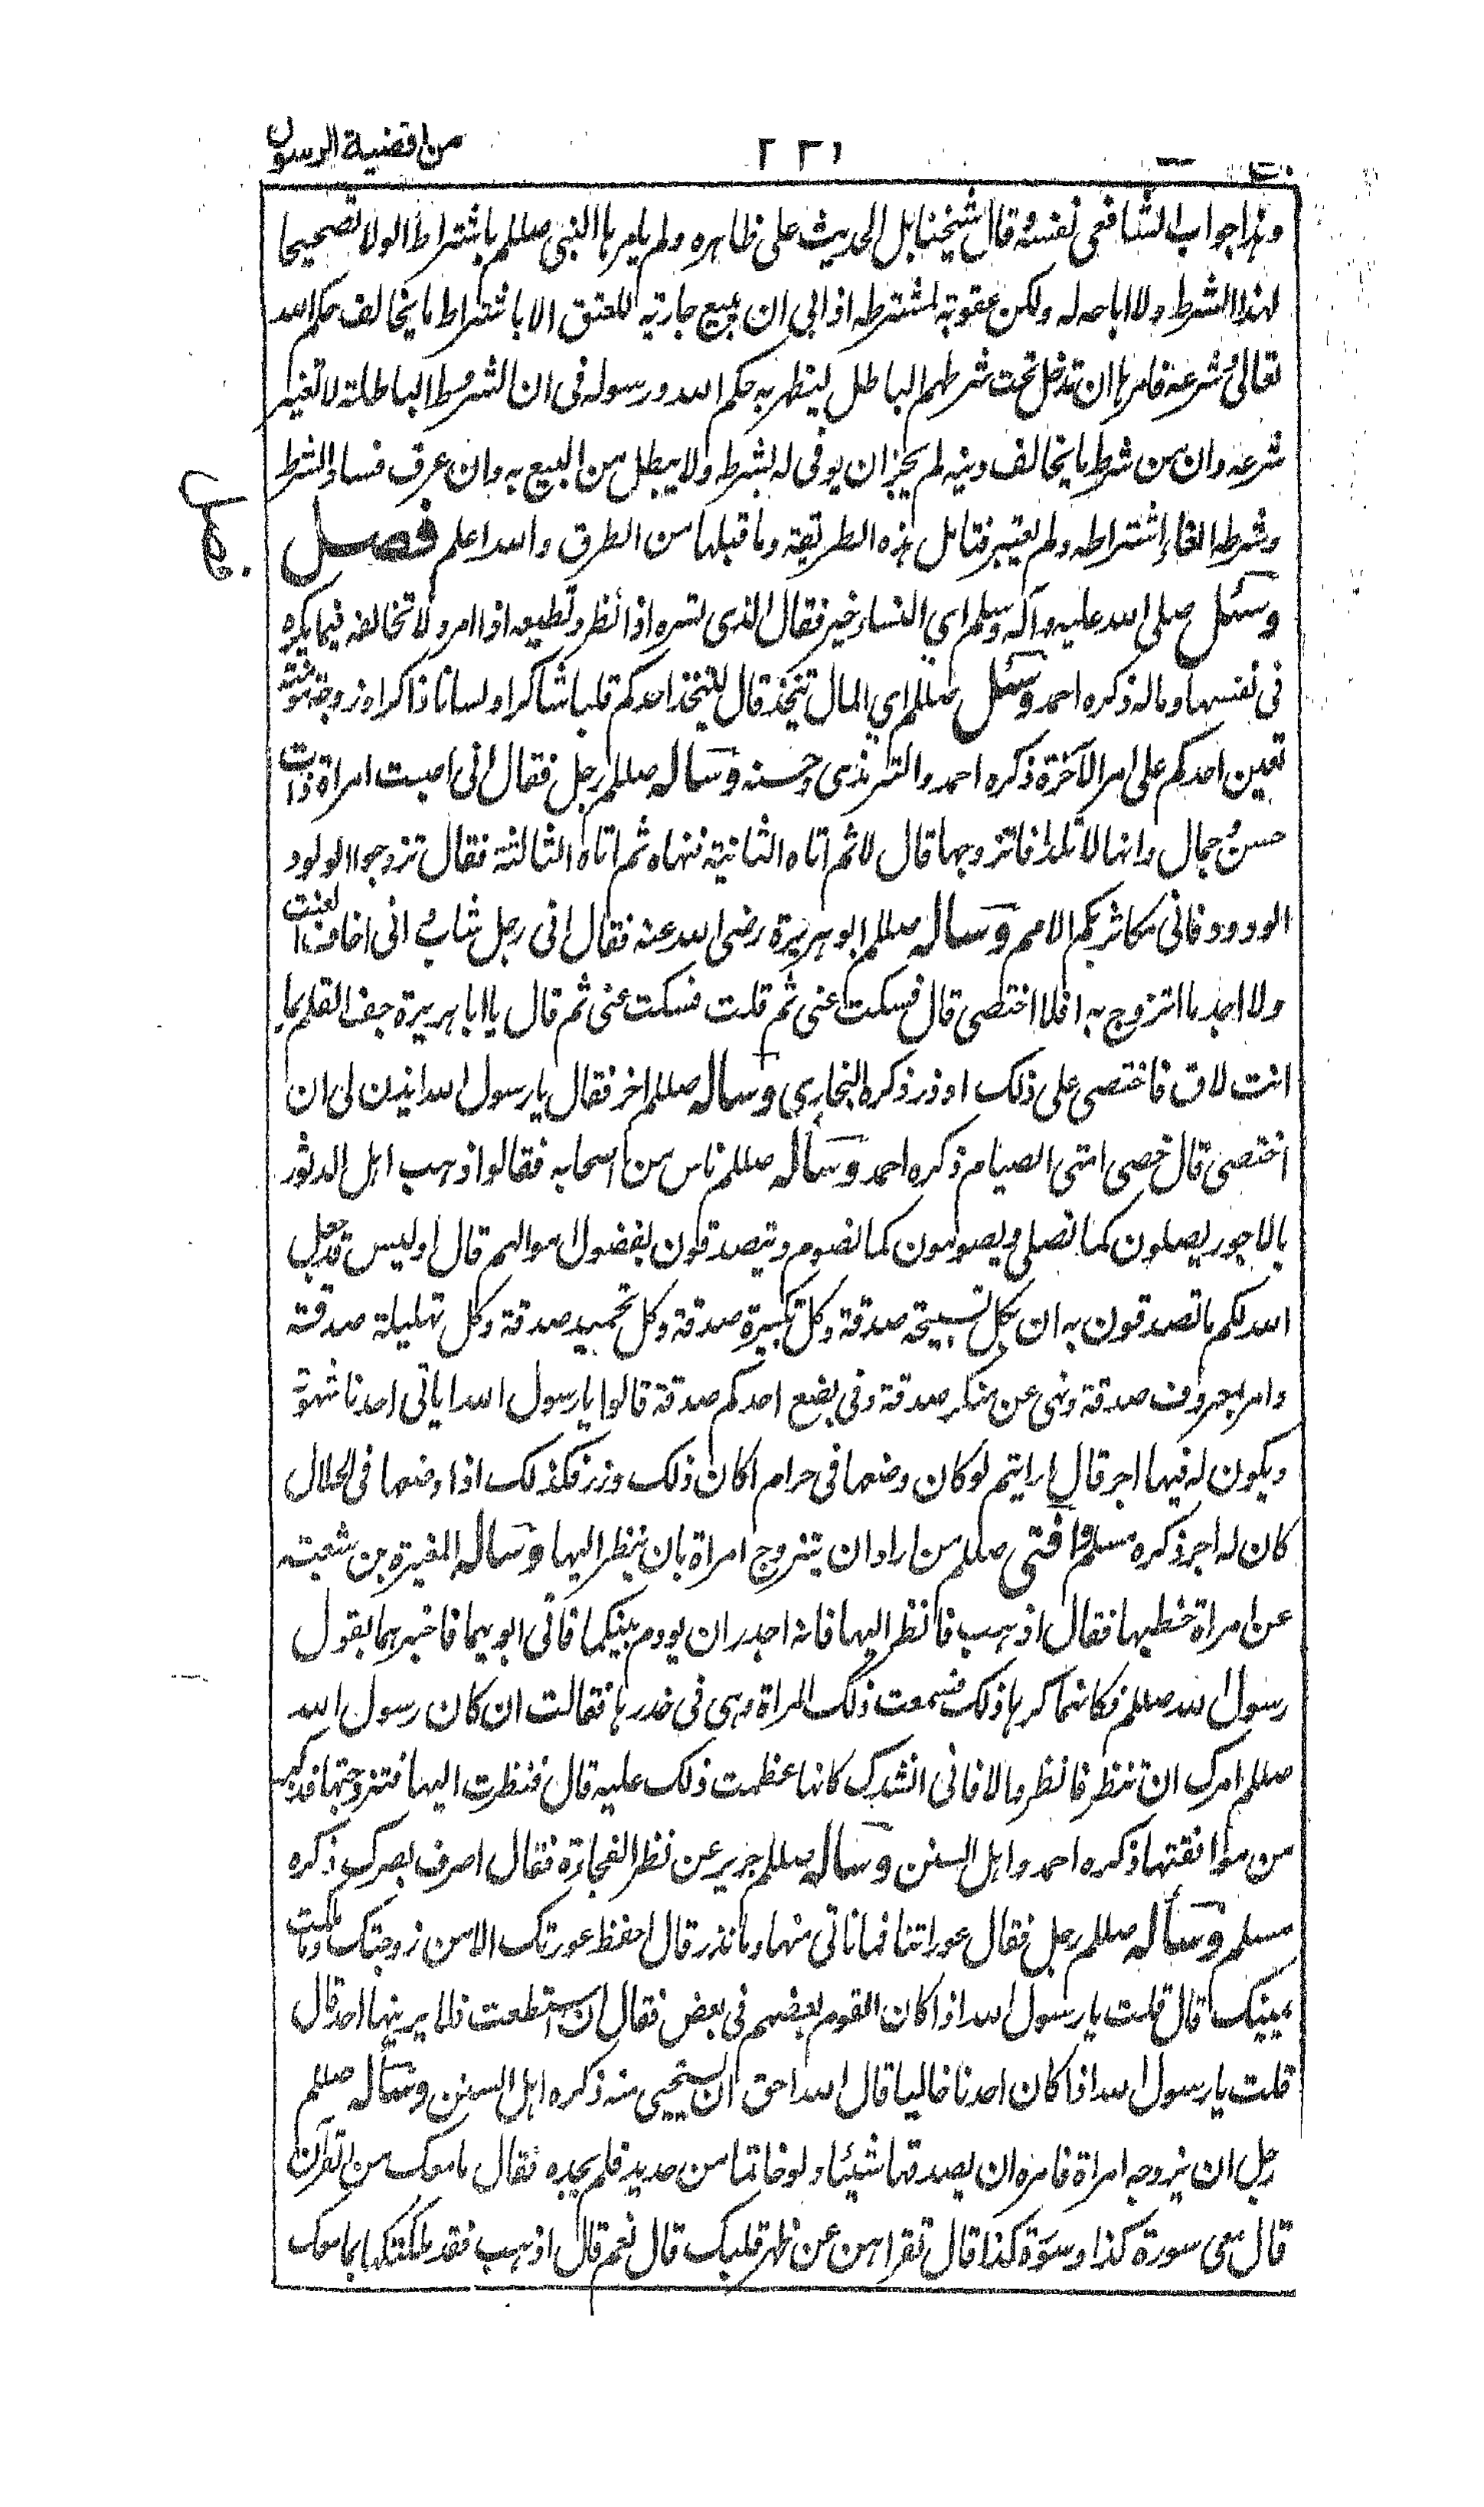 من اقضية الرسول
٢٣١
وهذا جواب الشافعي نفسه وقال شيخنا بل الحديث على ظاهره ولم يامرها النبي صللم باشتراط الولا تصحيحا
لهذا الشرط ولا اباحه له ولكن عقوبة لمشترطه اذ ابى ان يبيع جارية للعتق الا باشتراط ما يخالف حكم الله
تعالى وشرعه فامرها ان تدخل تحت شرطهم الباطل ليظهر به حكم الله ورسوله فى ان الشروط الباطلة لا تغير
شرعه وان من شرط ما يخالف دينه لم يجز ان يوفى له بشرطه ولا يبطل من البيع به وان عرف فساد الشرط
وشرطه الغاء اشتراطه ولم يعتبر فتامل هذه الطريقة وما قبلها من الطرق والله اعلم فصل
وسئل صلى الله عليه وآله وسلم اي النساء خير فقال الذى تسره اذا نظر وتطيعه اذا امر ولا تخالفه فيما يكره
فى نفسها وماله ذكره احمد وسئل صللم اي المال نتخذ قال ليتخذ احدكم قلبا شاكرا ولسانا ذاكرا وزوجة مؤمنة
تعين احدكم على امر الآخرة ذكره احمد والترمذى وحسنه وساله صللم رجل فقال انى اصبت امراة ذات
حسن وجمال وانها لا تلد افاتزوجها قال لا ثم اتاه الثانية فنهاه ثم اتاه الثالثة فقال تزوجوا الولود
الودود فانى مكاثر بكم الامم وساله صللم ابو هريرة رضى الله عنه فقال انى رجل شاب وانى اخاف العنت
ولا اجد ما اتزوج به افلا اختصى قال فسكت عنى ثم قلت فسكت عنى ثم قال يا ابا هريرة جف القلم بما
انت لاق فاختصى على ذلك او ذر ذكره البخاري وساله صللم اخر فقال يا رسول الله ايذن لى ان
اختصى قال خصى امتى الصيام ذكره احمد وساله صللم ناس من اصحابه فقالوا ذهب اهل الدثور
بالاجور يصلون كما نصلى ويصومون كما نصوم ويتصدقون بفضول اموالهم قال اوليس قد جعل
الله لكم ما تصدقون به ان بكل تسبيحة صدقة وكل تكبيرة صدقة وكل تحميد صدقة وكل تهليلة صدقة
وامر بمعروف صدقة ونهى عن منكر صدقة وفى بضع احدكم صدقة قالوا يا رسول الله اياتى احدنا شهوة
ويكون له فيها اجر قال ارايتم لو كان وضعها فى حرام اكان ذلك وزر فكذلك اذا وضعها فى الحلال
كان له اجر ذكره مسلم وافتى صللم من اراد ان يتزوج امراة بان ينظر اليها وساله المغيرة بن شعبة
عن امراة خطبها فقال اذهب فانظر اليها فانه اجدر ان يودم بينكما فاتى ابويها فاخبرهما بقول
رسول الله صللم فكانهما كرها ذلك فسمعت ذلك المراة وهى فى خدرها فقالت ان كان رسول الله
صللم امرك ان تنظر فانظر والا فانى انشدك كانها عظمت ذلك عليه قال فنظرت اليها فتزوجتها فذكر
من موافقتها ذكره احمد واهل السنن وساله صللم جرير عن نظر الفجاءة فقال اصرف بصرك ذكره
مسلم وساله صللم رجل فقال عوراتنا فما ناتى منها وما نذر قال احفظ عورتك الا من زوجتك وما ملكت
يمينك قال قلت يا رسول الله اذا كان القوم بعضهم فى بعض فقال ان استطعت فلا يرينها احد قال
قلت يا رسول الله اذا كان احدنا خاليا قال الله احق ان يستحيى منه ذكره اهل السنن وساله صللم
رجل ان يزوجه امراة فامره ان يصدقها شيئا ولو خاتما من حديد فلم يجده فقال ما معك من القرآن
قال معى سورة كذا وسورة كذا قال تقراهن عن ظهر قلبك قال نعم قال اذهب فقد ملكتكها بما معك